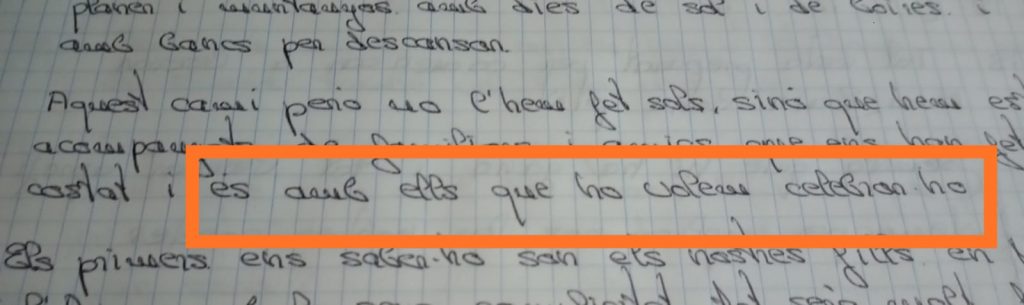 planen i muntanyes amb dies de sol i de
amb bancs per descansar.
Aquest camí però no l'hem fet sols, sinó que hem es
acompanyats de família i amics que ens han fet
costat i és amb ells que ho volem celebrar-ho
Els primers ens saber-ho son els nostres fills en